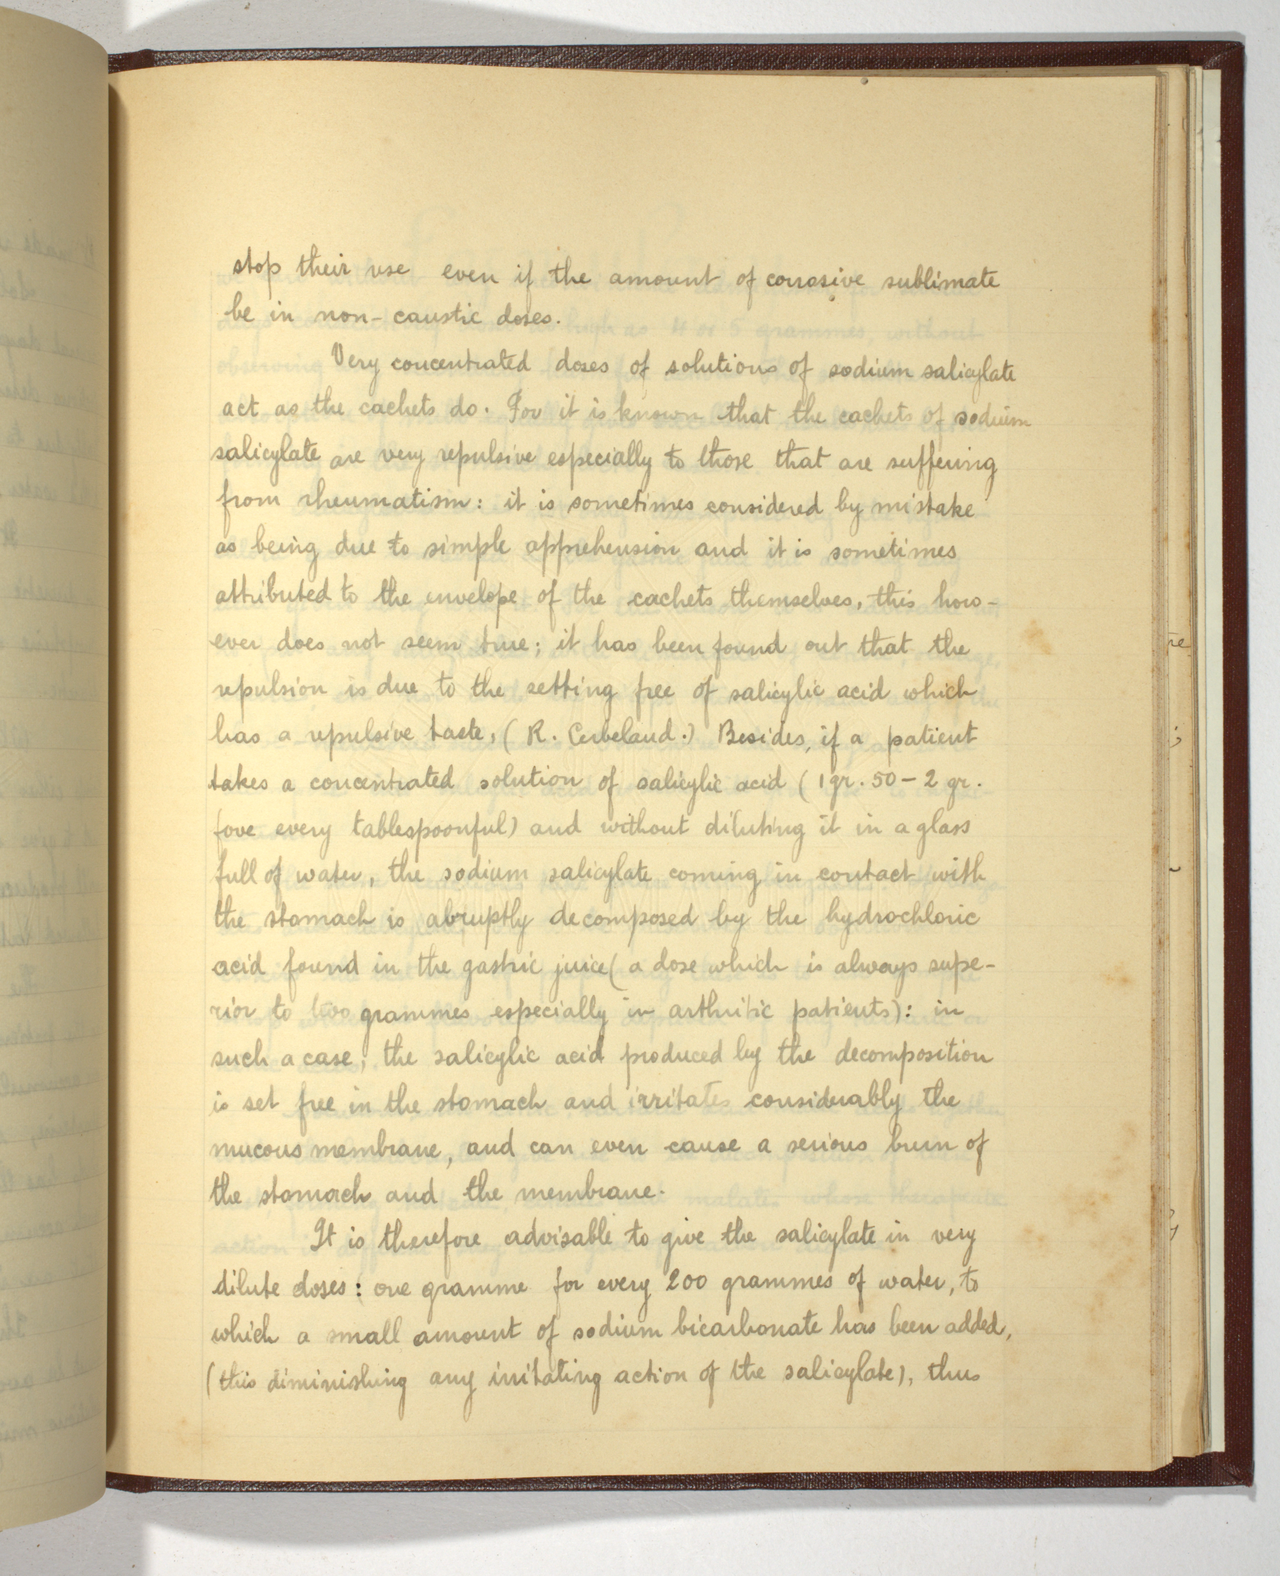 stop their use even if the amount of corrosive sublimate
be in non-caustic doses.
Very concentrated doses of solutions of sodium salicylate
act as the cachets do. For it is known that the cachets of sodium
salicylate are very repulsive especially to those that are suffering
from rheumatism: it is sometimes considered by mistake
as being due to simple apprehension and it is sometimes
attributed to the envelope of the cachets themselves, this how-
ever does not seem true; it has been found out that the
repulsion is due to the setting free of salicylic acid which
has a repulsive taste, (R. Cerbeland.) Besides, if a patient
takes a concentrated solution of salicylic acid (1 gr. 50 - 2 gr.
fove every tablespoonful) and without diluting it in a glass
full of water, the sodium salicylate coming in contact with
the stomach is abruptly decomposed by the hydrochloric
acid found in the gastric juice (a dose which is always supe-
rior to two grammes especially in arthritic patients): in
such a case, the salicylic acid produced by the decomposition
is set free in the stomach and irritates considerably the
mucous membrane, and can even cause a serious burn of
the stomach and the membrane.
It is therefore advisable to give the salicylate in very
dilute doses: one gramme for every 200 grammes of water, to
which a small amount of sodium bicarbonate has been added,
(this diminishing any irritating action of the salicylate), thus